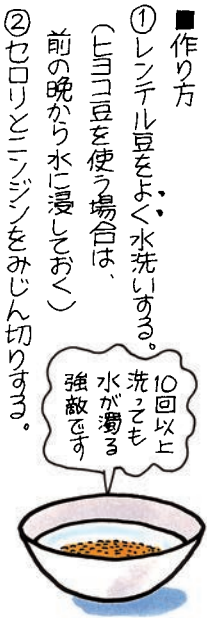 ■作り方
①レンテル豆をよく水洗いする。
(ヒヨコ豆を使う場合は、
前の晩から水に浸しておく)
②セロリとニンジンをみじん切りする。
10回以上
洗っても
水が濁る
強敵です